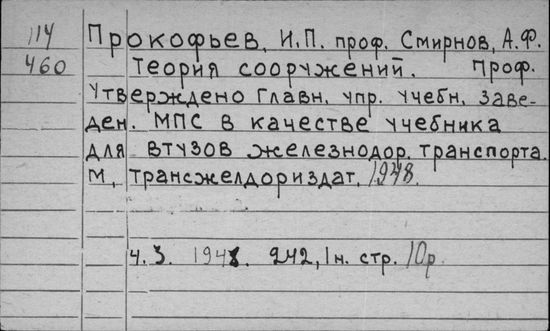 114 Прокофьев, И.П. проф. Смирнов, А.Ф.
460 Теория сооружений. проф.
Утверждено Главн. упр. учебн. заве-
ден. МПС в качестве учебника
для втузов железнодор. транспорта.
М., Трансжелдориздат, 1948.
ч. 3. 1948. 242, 1 н. стр. 10р.